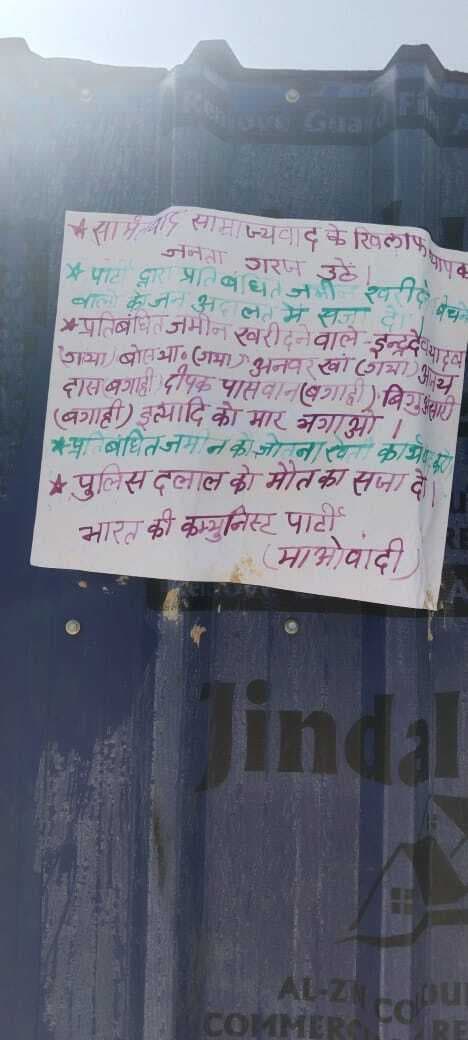 Remove Guard Film
★ सामंतवाद साम्राज्यवाद के खिलाफ व्यापक
जनता गरज उठें।
★ पार्टी द्वारा प्रतिबंधित जमीन खरीदने बेचने
वालो को जन अदालत में सजा दो।
★ प्रतिबंधित जमीन खरीदने वाले - इन्द्रदेव यादव
(गया) बोस (गया) अनवर खां (गया)
दास बगाही) दीपक पासवान (बगाही)
(बगाही) इत्यादि को मार भगाओ।
★ प्रतिबंधित जमीन को जोतना
★ पुलिस दलाल को मौत का सजा दो।
भारत की कम्युनिस्ट पार्टी
(माओवादी)
Jindal
AL-ZN
COMMERC